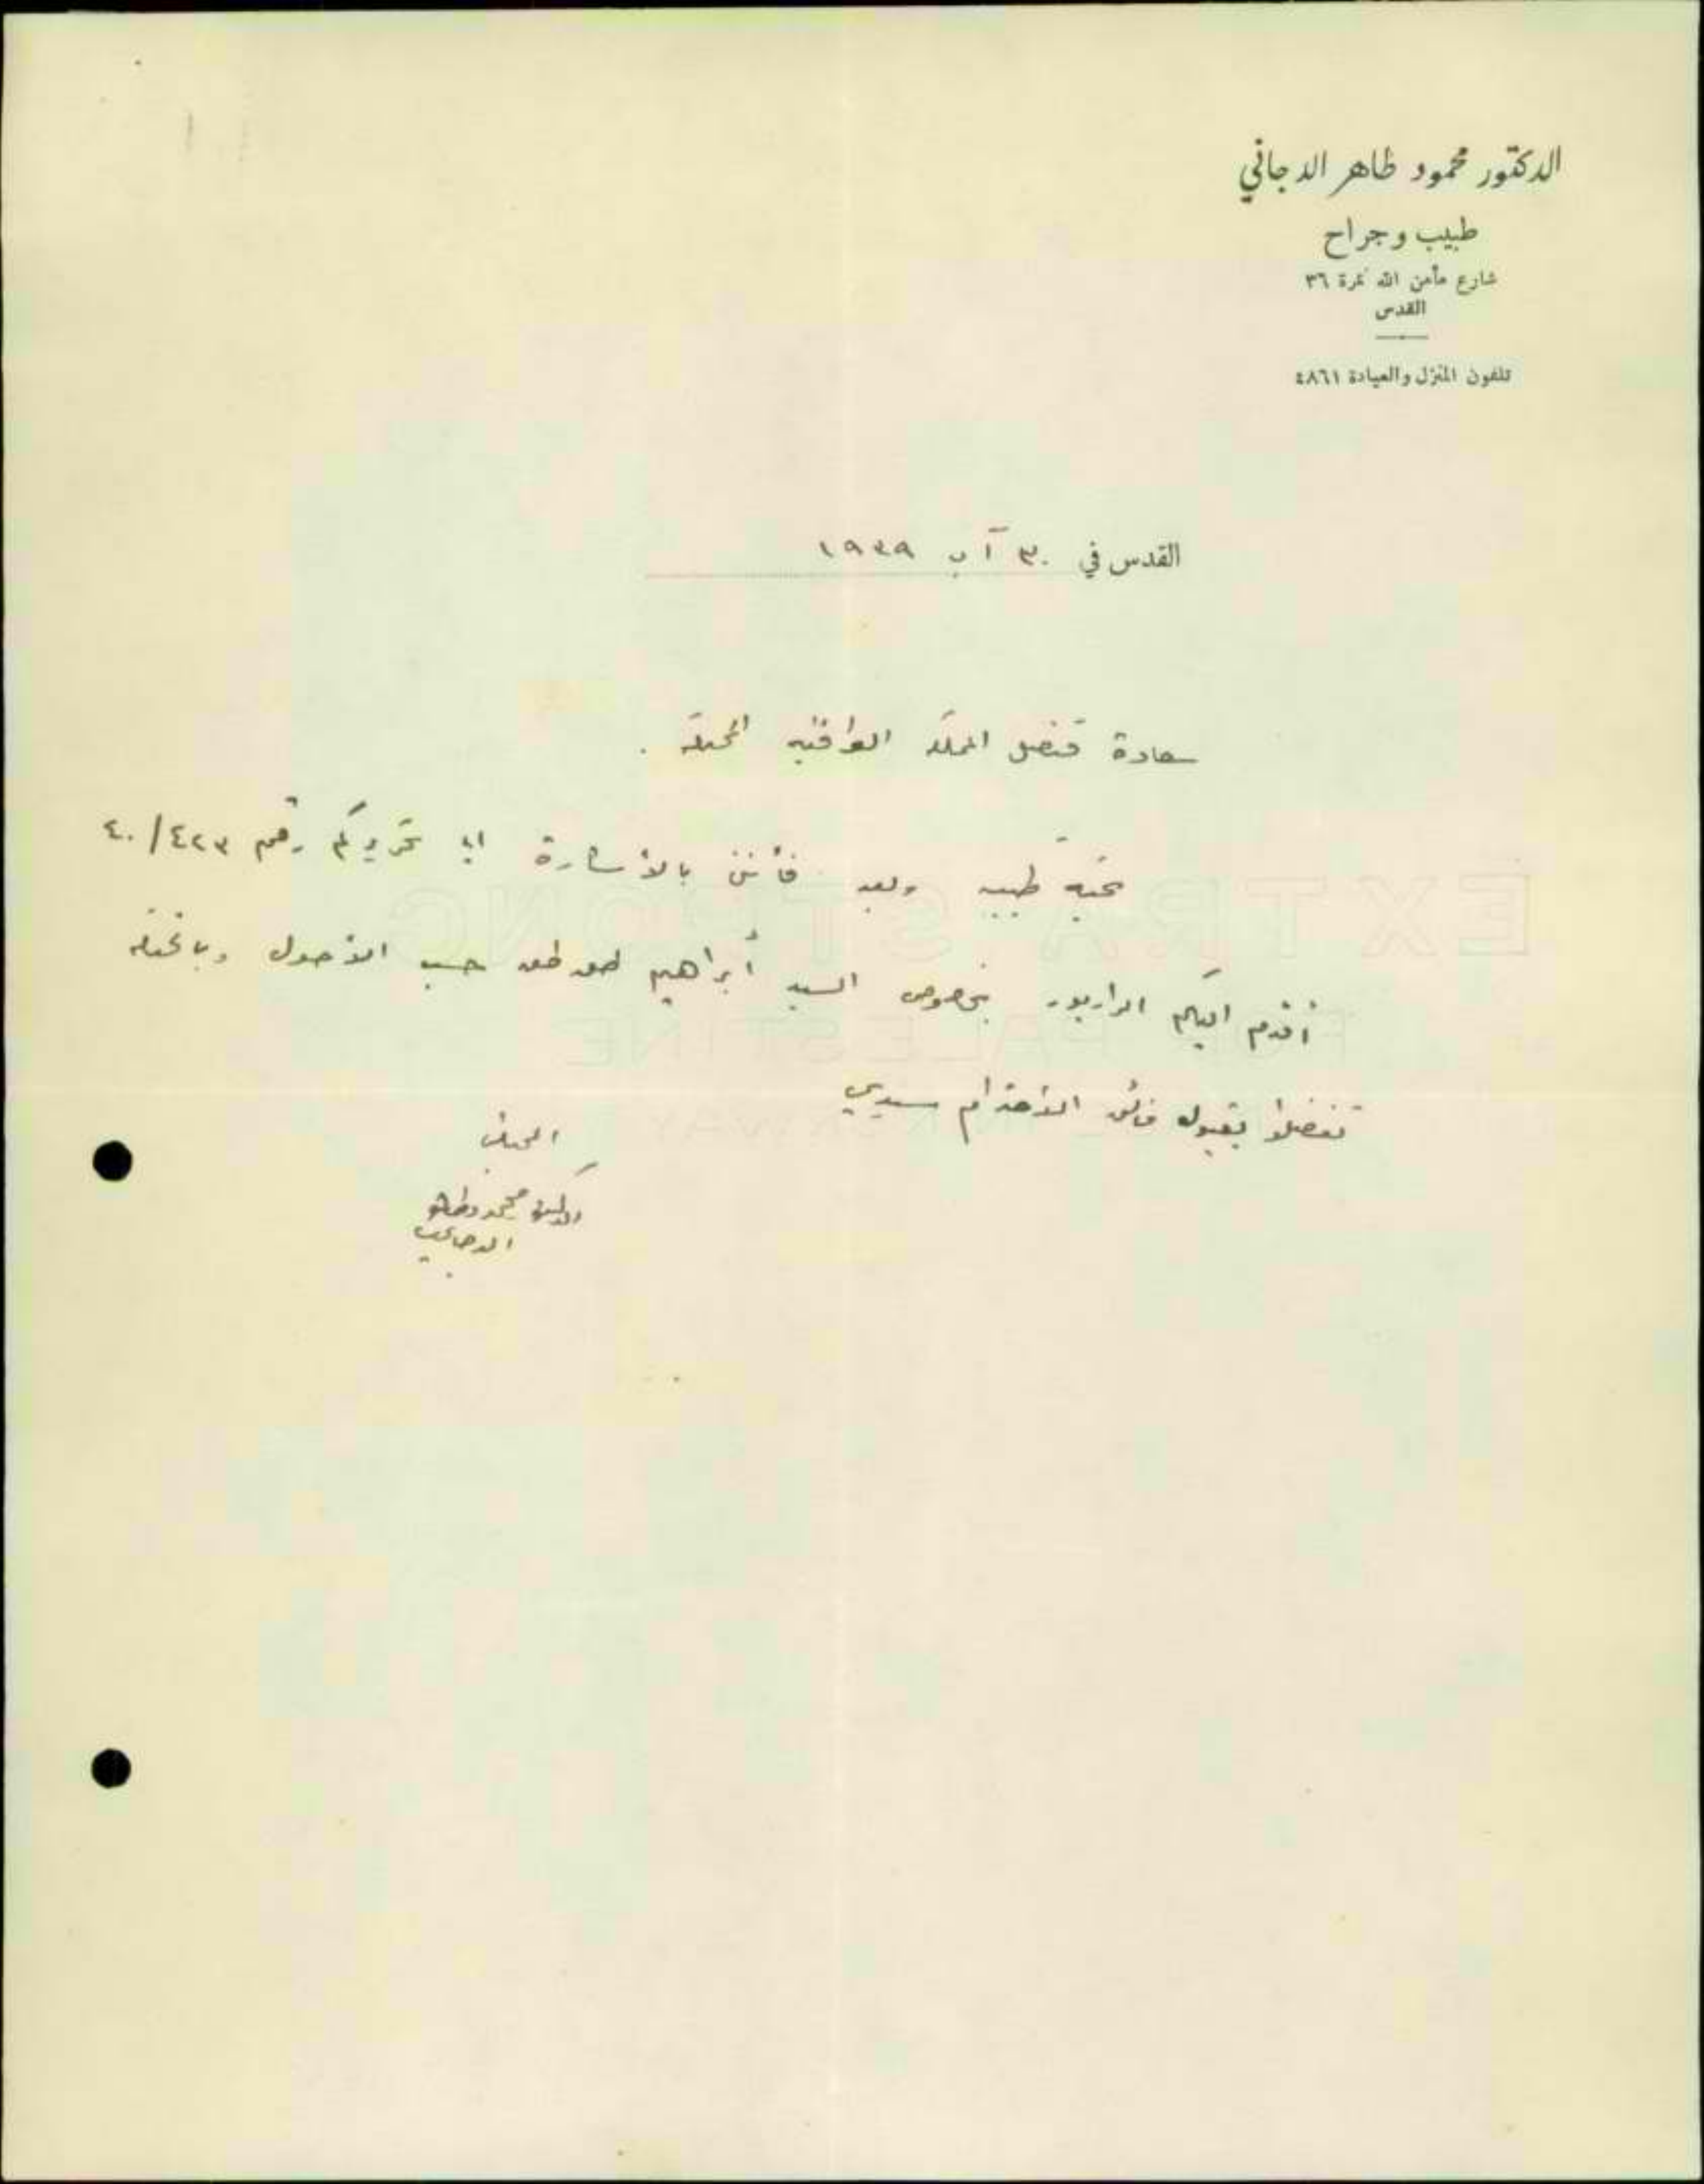 الدكتور محمود طاهر الدجاني
طبيب وجراح
شارع مأمن الله نمرة ٣٦
القدس
تلفون المنزل والعيادة ٤٨٦١
القدس في ٣٠ آب ١٩٣٩
سعادة قنصل المملكة العراقية المحترم .
تحية طيبة وبعد فأنني بالأشارة الى تحريركم رقم ٤٠/٤٢٣
أقدم اليكم الرابور بخصوص السيد أبراهيم طوطح حسب الأصول
تفضلوا بقبول فائق الأحترام سيدي
المخلص
الدكتور محمود طاهر
الدجاني
EXTRA STRONG